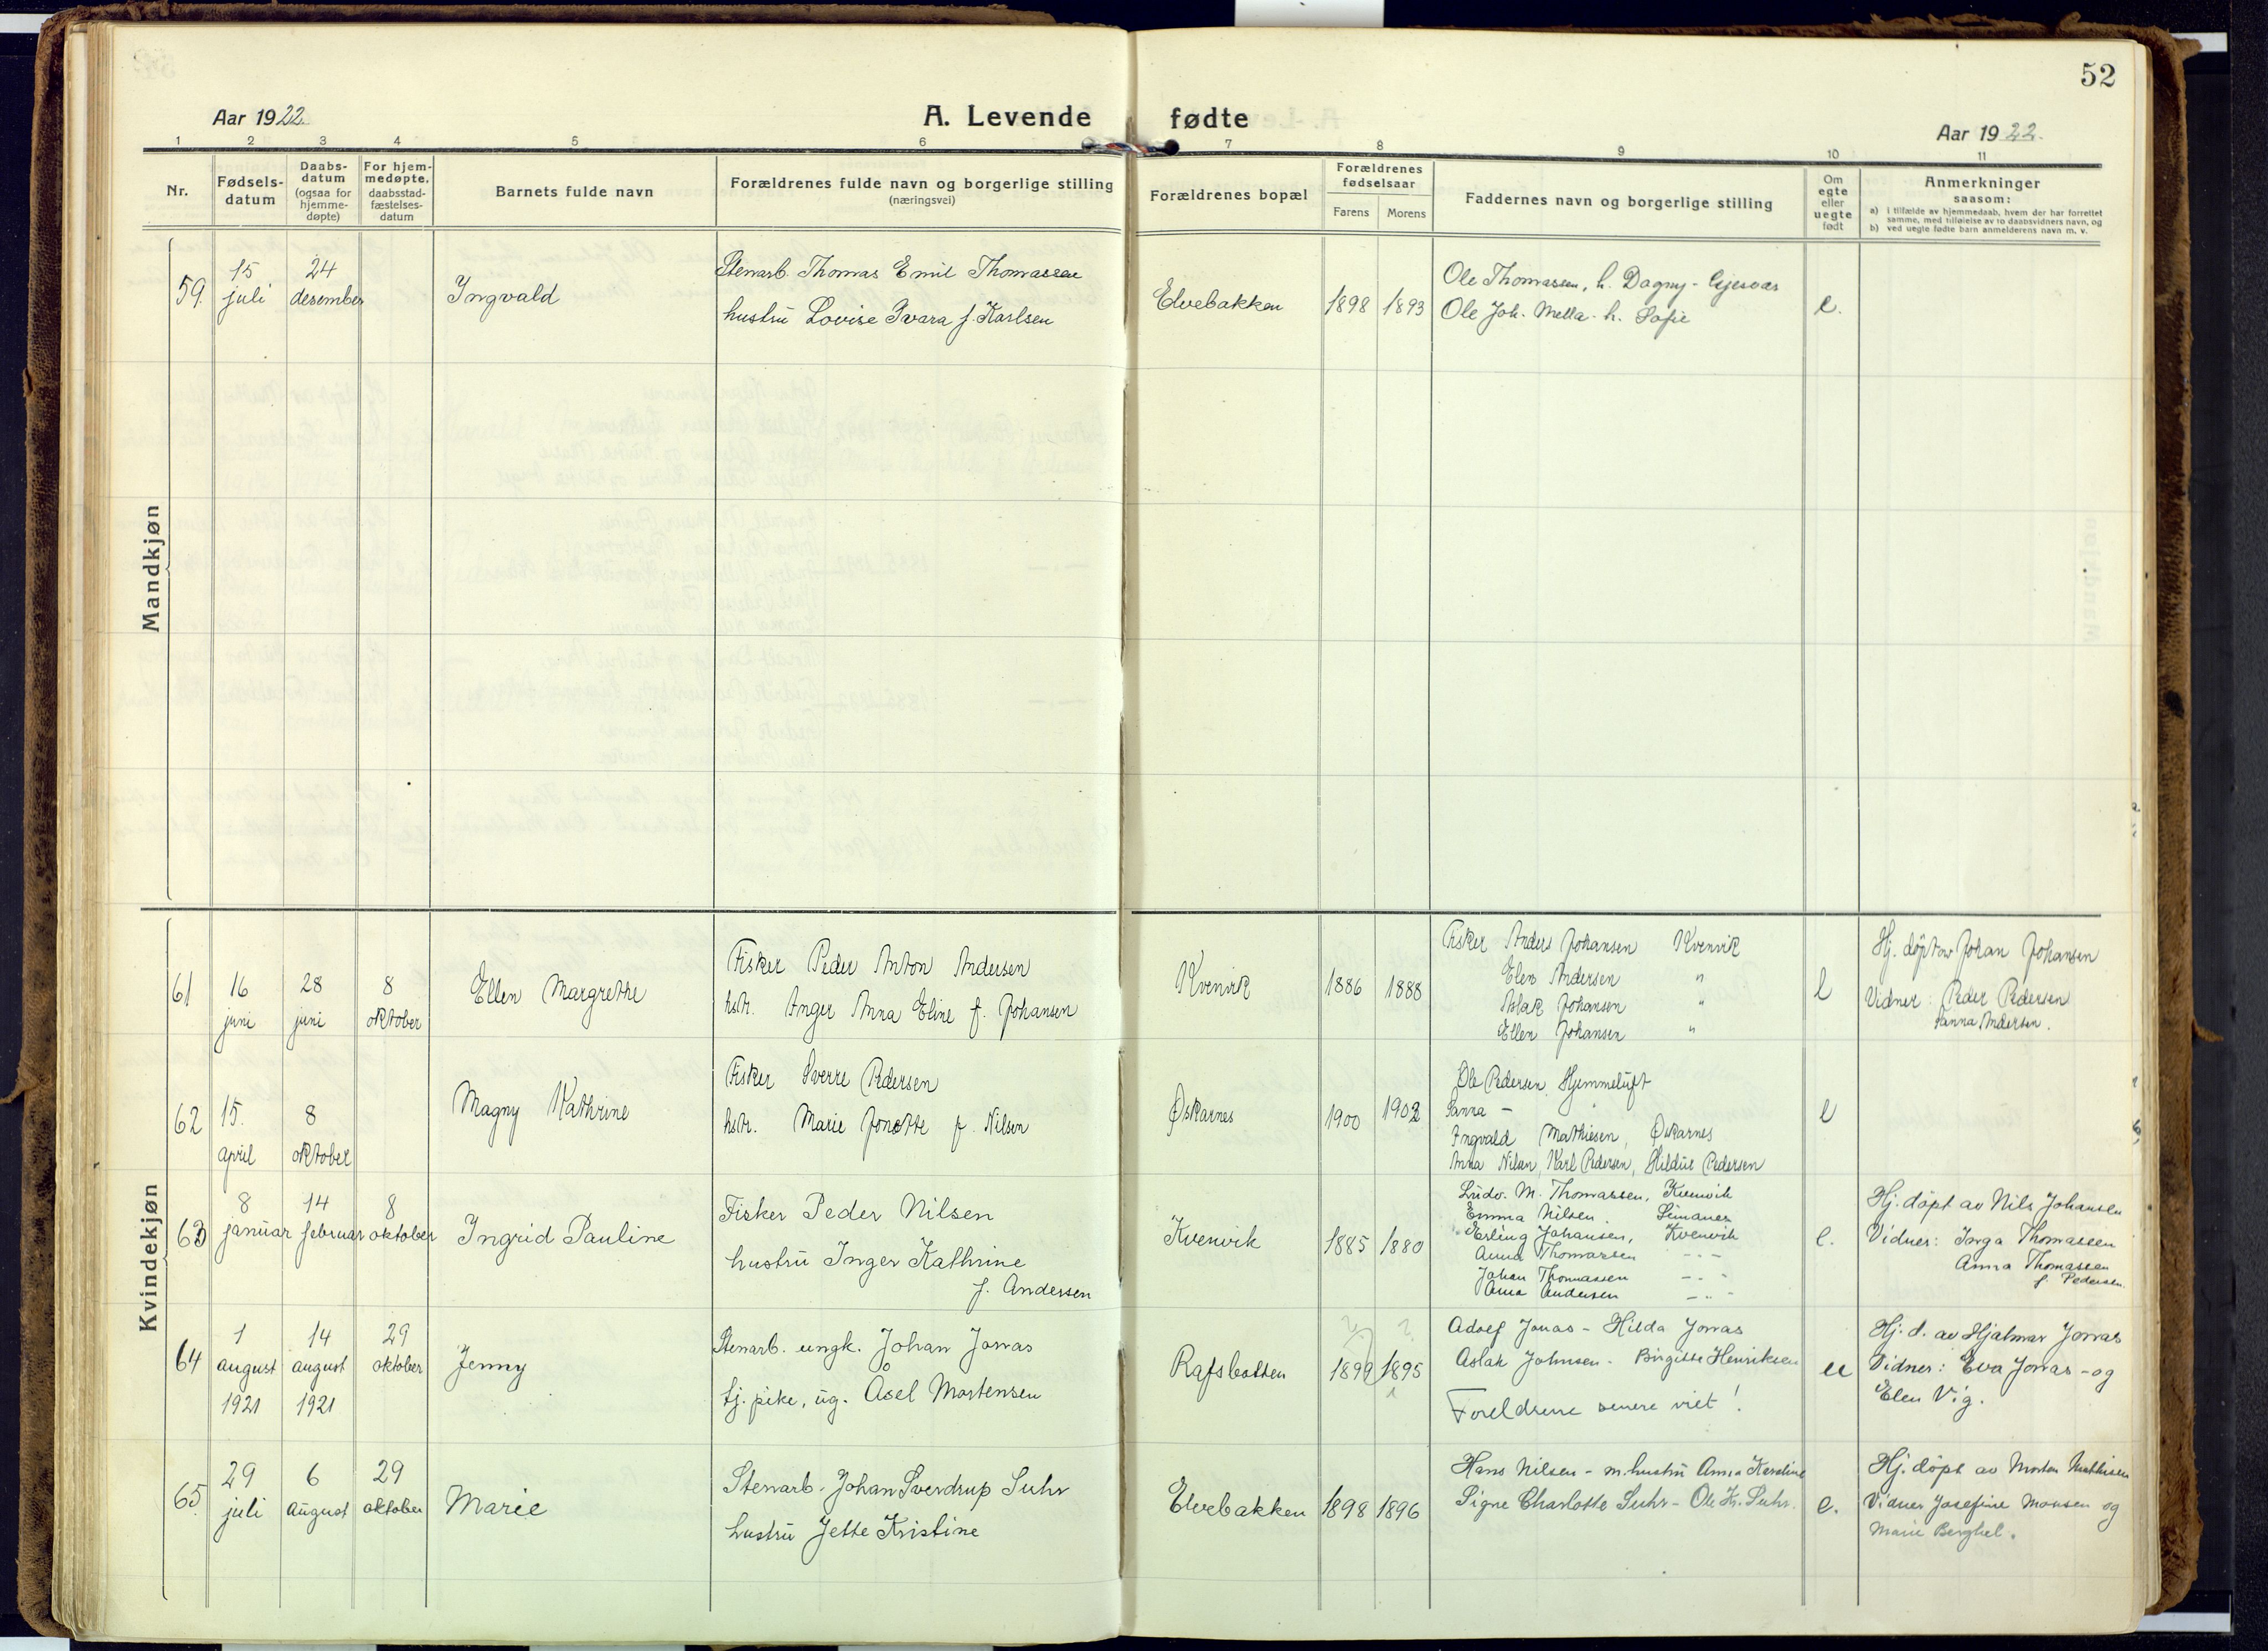 52
Aar 1922
A. Levende fødte
Aar 1922.
1 2 3 4 5 6 7 8 9 10 11
Nr.
Fødsels-
datum
Daabs-
datum
(ogsaa for
hjemme-
døpte)
For hjem-
medøpte,
daabsstad-
fæstelses-
datum
Barnets fulde navn
Forældrenes fulde navn og borgerlige stilling
(næringsvei)
Forældrenes bopæl
Forældrenes
fødselsaar
Farens Morens
Faddernes navn og borgerlige stilling
Om
egte
eller
uegte
født
Anmerkninger
saasom:
a) i tilfælde av hjemmedaab, hvem der har forrettet
samme, med tilføielse av to daabsvidners navn, og
b) ved uegte fødte barn anmelderens navn m. v.
Mandkjøn
59.
15
juli
24
desember
Ingvald
Stenarb. Thomas Emil Thomassen
hustrü Lovise Ivara f. Karlsen
Elvebakken
1898 1893
Ole Thomassen, h. Dagny - Gjesvær
Ole Joh. Mella - h. Sofie
e.
Kvindekjøn
61
16
juni
28
juni
8
oktober
Ellen Margrethe
Fisker Peder Anton Andersen
hstr. Inger Anna Eline f. Johansen
Kvenvik
1886 1888
Fisker Anders Johansen Kvenvik
Elen Andersen "
Aslak Johansen "
Ellen Johansen "
e
Hj. døpt av Johan Johansen
Vidner: Peder Pedersen
Sanna Andersen.
62
15.
april
8
oktober
Magny Kathrine
Fisker Sverre Pedersen
hstr. Marie Jonette f. Nilsen
Øskarnes
1900 1902
Ole Pedersen, Hjemmelüft
Sanna - "
Ingvald Mathiesen, Øskarnes
Anna Nilsen, Karl Pedersen, Hildür Pedersen
e
63
8
januar
14
februar
8
oktober
Ingrid Pauline
Fisker Peder Nilsen
hustrü Inger Kathrine
f. Andersen
Kvenvik
1885 1880
Lüdv. M. Thomassen, Kvenvik
Emma Nilsen. Simanes
Erling Johansen, Kvenvik
Anna Thomassen - " -
Johan Thomassen - " -
Anna Andersen - " -
e.
Hj. døpt av Nils Johansen
Vidner: Inga Thomassen
Anna Thomassen
f. Pedersen.
64
1
august
1921
14
august
1921
29
oktober
Jenny
Stenarb. ungk. Johan Jonas
tj. pike, üg. Åsel Mortensen
Rafsbotten
? ?
1899 1895
Adolf Jonas - Hilda Jonas
Aslak Johnsen - Birgitte Henriksen
Foreldrene senere viet!
u
Hj. d. av Hjalmar Jonas
Vidner: Eva Jonas - og
Elen Vig.
65.
29
juli
6
August
29
oktober
Marie
Stenarb. Johan Sverdrup Suhr
hustrü Jette Kristine
Elvebakken
1898 1896
Hans Nilsen - m. hustrü Anna Karoline
Signe Charlotte Suhr - Ole Kr. Suhr.
e.
Hj. døpt av Morten Mathisen
Vidner Josefine Monsen og
Marie Berghel.